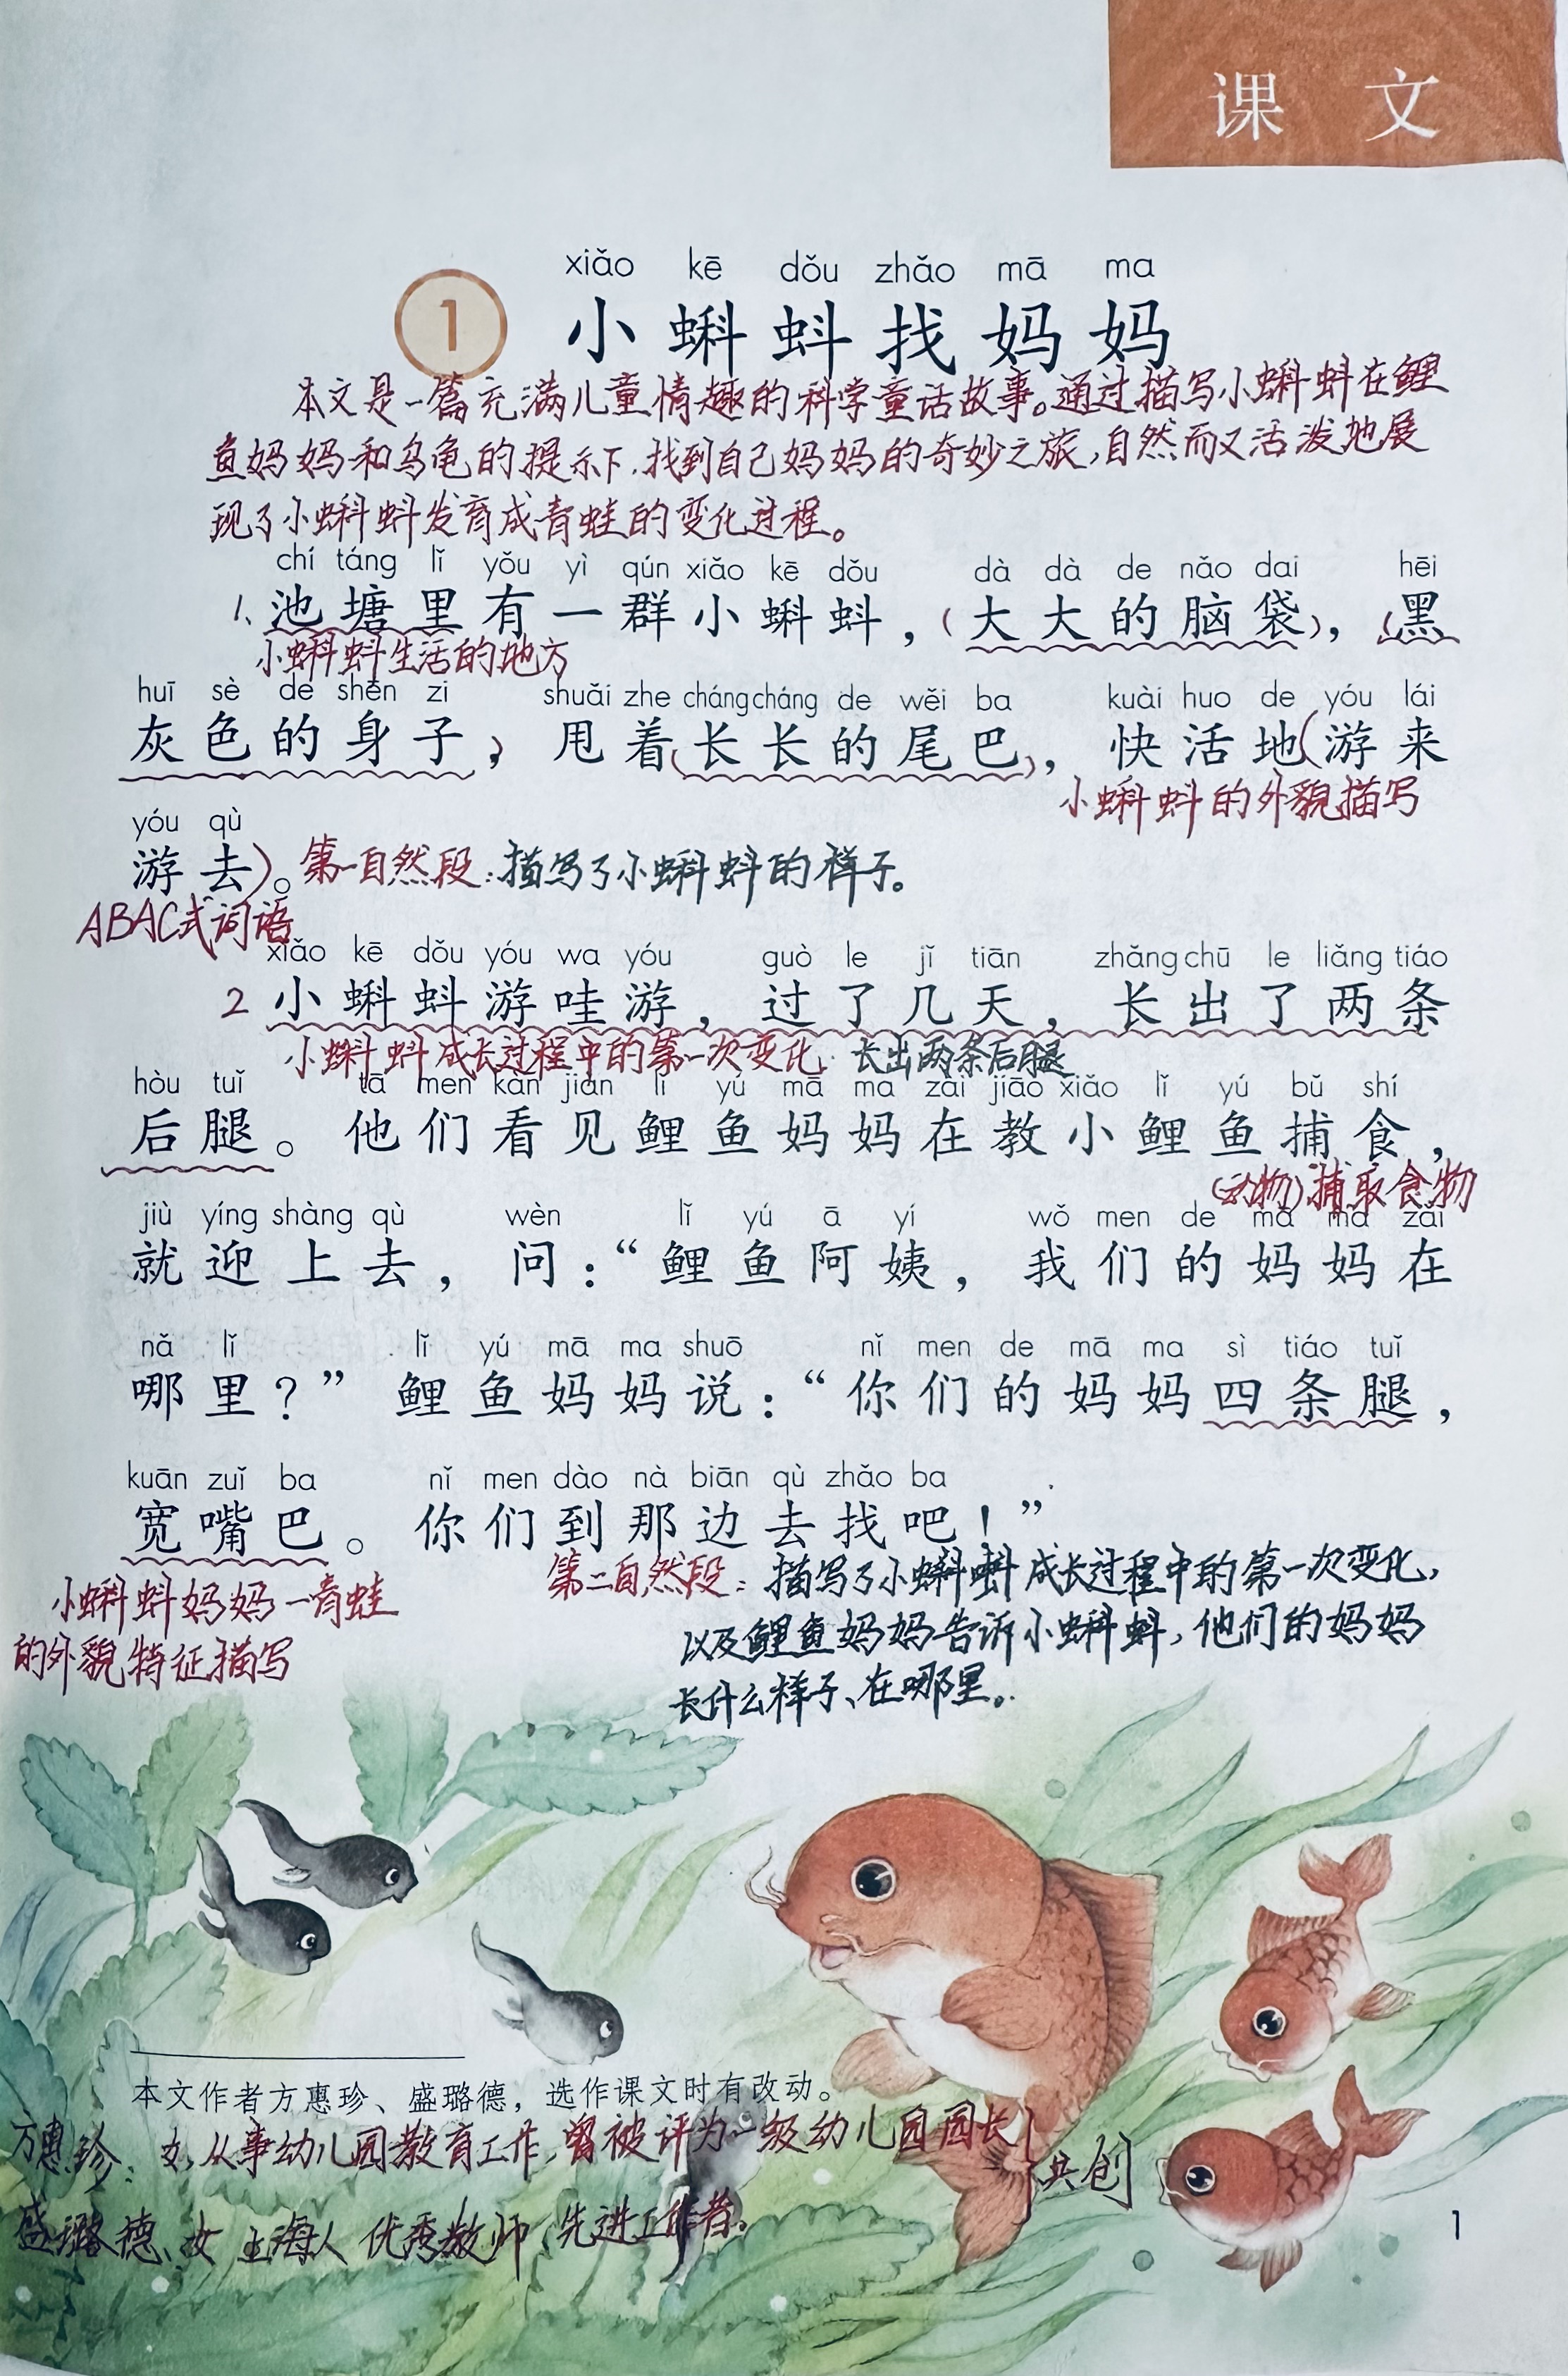 课 文
xiǎo kē dǒu zhǎo mā ma
1 小蝌蚪找妈妈
本文是一篇充满儿童情趣的科学童话故事。通过描写小蝌蚪在鲤
鱼妈妈和乌龟的提示下,找到自己妈妈的奇妙之旅,自然而又活泼地展
现了小蝌蚪发育成青蛙的变化过程。
chí táng lǐ yǒu yì qún xiǎo kē dǒu dà dà de nǎo dai hēi
1、池塘里有一群小蝌蚪,(大大的脑袋),(黑
小蝌蚪生活的地方
huī sè de shēn zi shuǎi zhe cháng cháng de wěi ba kuài huo de yóu lái
灰色的身子),甩着(长长的尾巴),快活地(游来
小蝌蚪的外貌描写
yóu qù
游去)。第一自然段:描写了小蝌蚪的样子。
ABAC式词语
xiǎo kē dǒu yóu wa yóu guò le jǐ tiān zhǎng chū le liǎng tiáo
2 小蝌蚪游哇游,过了几天,长出了两条
小蝌蚪成长过程中的第一次变化:长出两条后腿
hòu tuǐ tā men kàn jiàn lǐ yú mā ma zài jiāo xiǎo lǐ yú bǔ shí
后腿。他们看见鲤鱼妈妈在教小鲤鱼捕食,
(动物)捕取食物
jiù yíng shàng qù wèn lǐ yú ā yí wǒ men de mā ma zài
就迎上去,问:“鲤鱼阿姨,我们的妈妈在
nǎ lǐ lǐ yú mā ma shuō nǐ men de mā ma sì tiáo tuǐ
哪里?”鲤鱼妈妈说:“你们的妈妈四条腿,
kuān zuǐ ba nǐ men dào nà biān qù zhǎo ba
宽嘴巴。你们到那边去找吧!”
小蝌蚪妈妈—青蛙
的外貌特征描写
第二自然段:描写了小蝌蚪成长过程中的第一次变化,
以及鲤鱼妈妈告诉小蝌蚪,他们的妈妈
长什么样子、在哪里。
本文作者方惠珍、盛璐德,选作课文时有改动。
方惠珍:女,从事幼儿园教育工作,曾被评为一级幼儿园园长
共创
盛璐德、女 上海人 优秀教师、先进工作者。
1